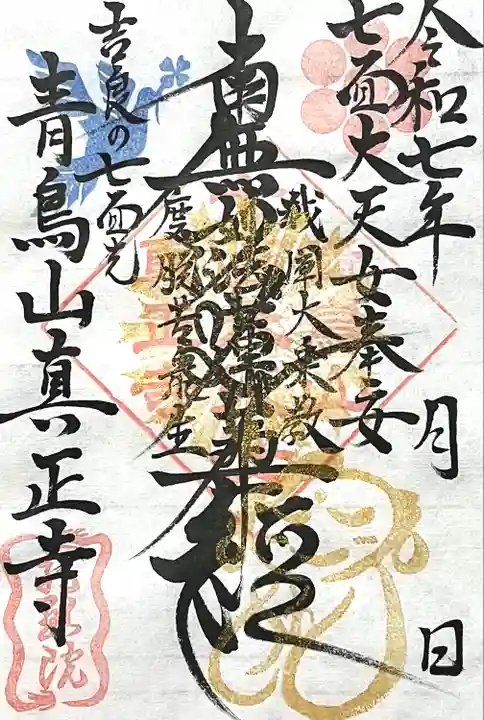 令和七年 月 日
七面大天女奉安
我聞大乗教
南無妙法蓮華経
度脱苦衆生
吉良の七面光
青鳥山真正寺